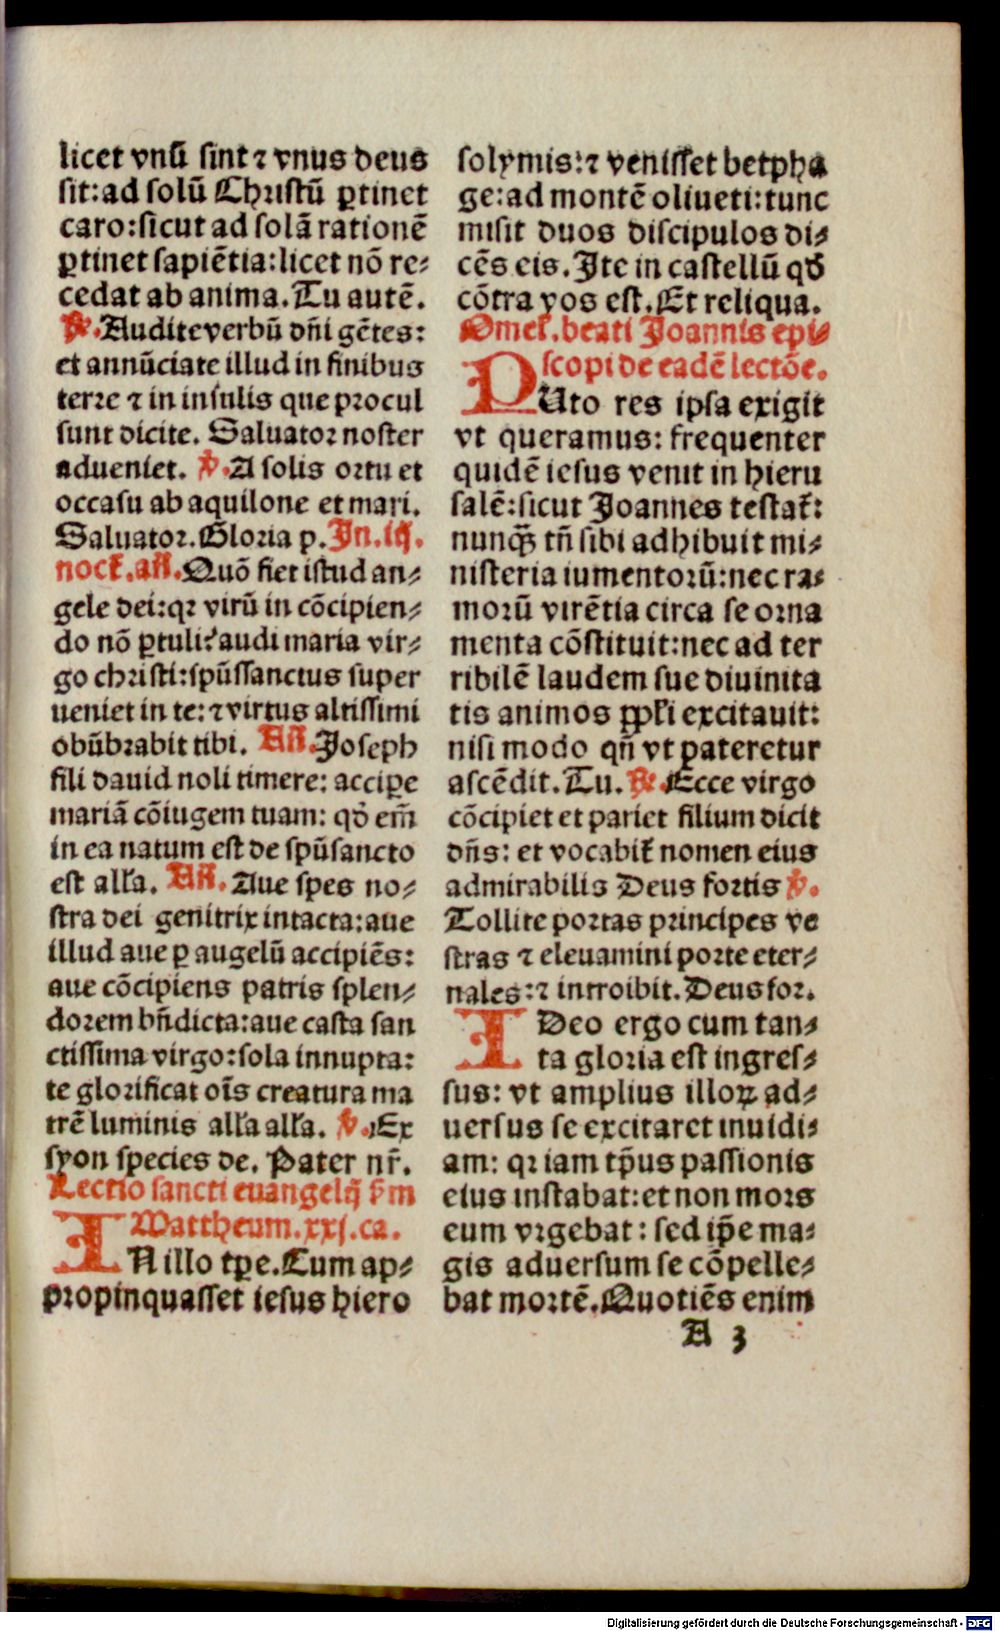 licet vnū sint ⁊ vnus deus
sit: ad solū Christū ꝑtinet
caro: sicut ad solā rationē
ꝑtinet sapiētia: licet nō re⸗
cedat ab anima. Tu autē.
℟. Audite verbū dn̄i gētes:
et annūciate illud in finibus
terre ⁊ in insulis que procul
sunt dicite. Saluator noster
adueniet. ℣. A solis ortu et
occasu ab aquilone et mari.
Saluator. Gloria p. In. iij.
noct̄. an̄. Quō fiet istud an⸗
gele dei: qꝛ virū in cōcipien⸗
do nō ꝑtuli? audi maria vir⸗
go christi: spūssanctus super
ueniet in te: ⁊ virtus altissimi
obūbrabit tibi. An̄. Joseph
fili dauid noli timere: accipe
mariā cōiugem tuam: qđ em̄
in ea natum est de spūsancto
est alla. An̄. Aue spes no⸗
stra dei genitrix intacta: aue
illud aue ꝑ augelū accipiēs:
aue cōcipiens patris splen⸗
dorem bn̄dicta: aue casta san
ctissima virgo: sola innupta:
te glorificat oīs creatura ma
trē luminis alla alla. ℣. Ex
syon species de. Pater nr̄.
Lectio sancti euangelij s̄m
Mattheum. xxj. ca.
IN illo tꝑe. Cum ap⸗
propinquasset iesus hiero
solymis: ⁊ venisset betpha
ge: ad montē oliueti: tunc
misit duos discipulos di⸗
cēs eis. Ite in castellū qđ
cōtra vos est. Et reliqua.
Omel̄. beati Joannis epi⸗
scopi de eadē lectōe.
PUto res ipsa exigit
vt queramus: frequenter
quidē iesus venit in hieru
salē: sicut Joannes testat̄:
nunqꝫ tn̄ sibi adhibuit mi⸗
nisteria iumentorū: nec ra⸗
morū virētia circa se orna
menta cōstituit: nec ad ter
ribilē laudem sue diuinita
tis animos ppl̄i excitauit:
nisi modo qn̄ vt pateretur
ascēdit. Tu. ℟. Ecce virgo
cōcipiet et pariet filium dicit
dn̄s: et vocabit̄ nomen eius
admirabilis Deus fortis ℣.
Tollite portas principes ve
stras ⁊ eleuamini porte eter⸗
nales: ⁊ introibit. Deus for.
IDeo ergo cum tan⸗
ta gloria est ingres⸗
sus: vt amplius illoꝝ ad⸗
uersus se excitaret inuidi⸗
am: qꝛ iam tp̄us passionis
eius instabat: et non mors
eum vrgebat: sed ip̄e ma⸗
gis aduersum se cōpelle⸗
bat mortē. Quotiēs enim
A 3
Digitalisierung gefördert durch die Deutsche Forschungsgemeinschaft - DFG